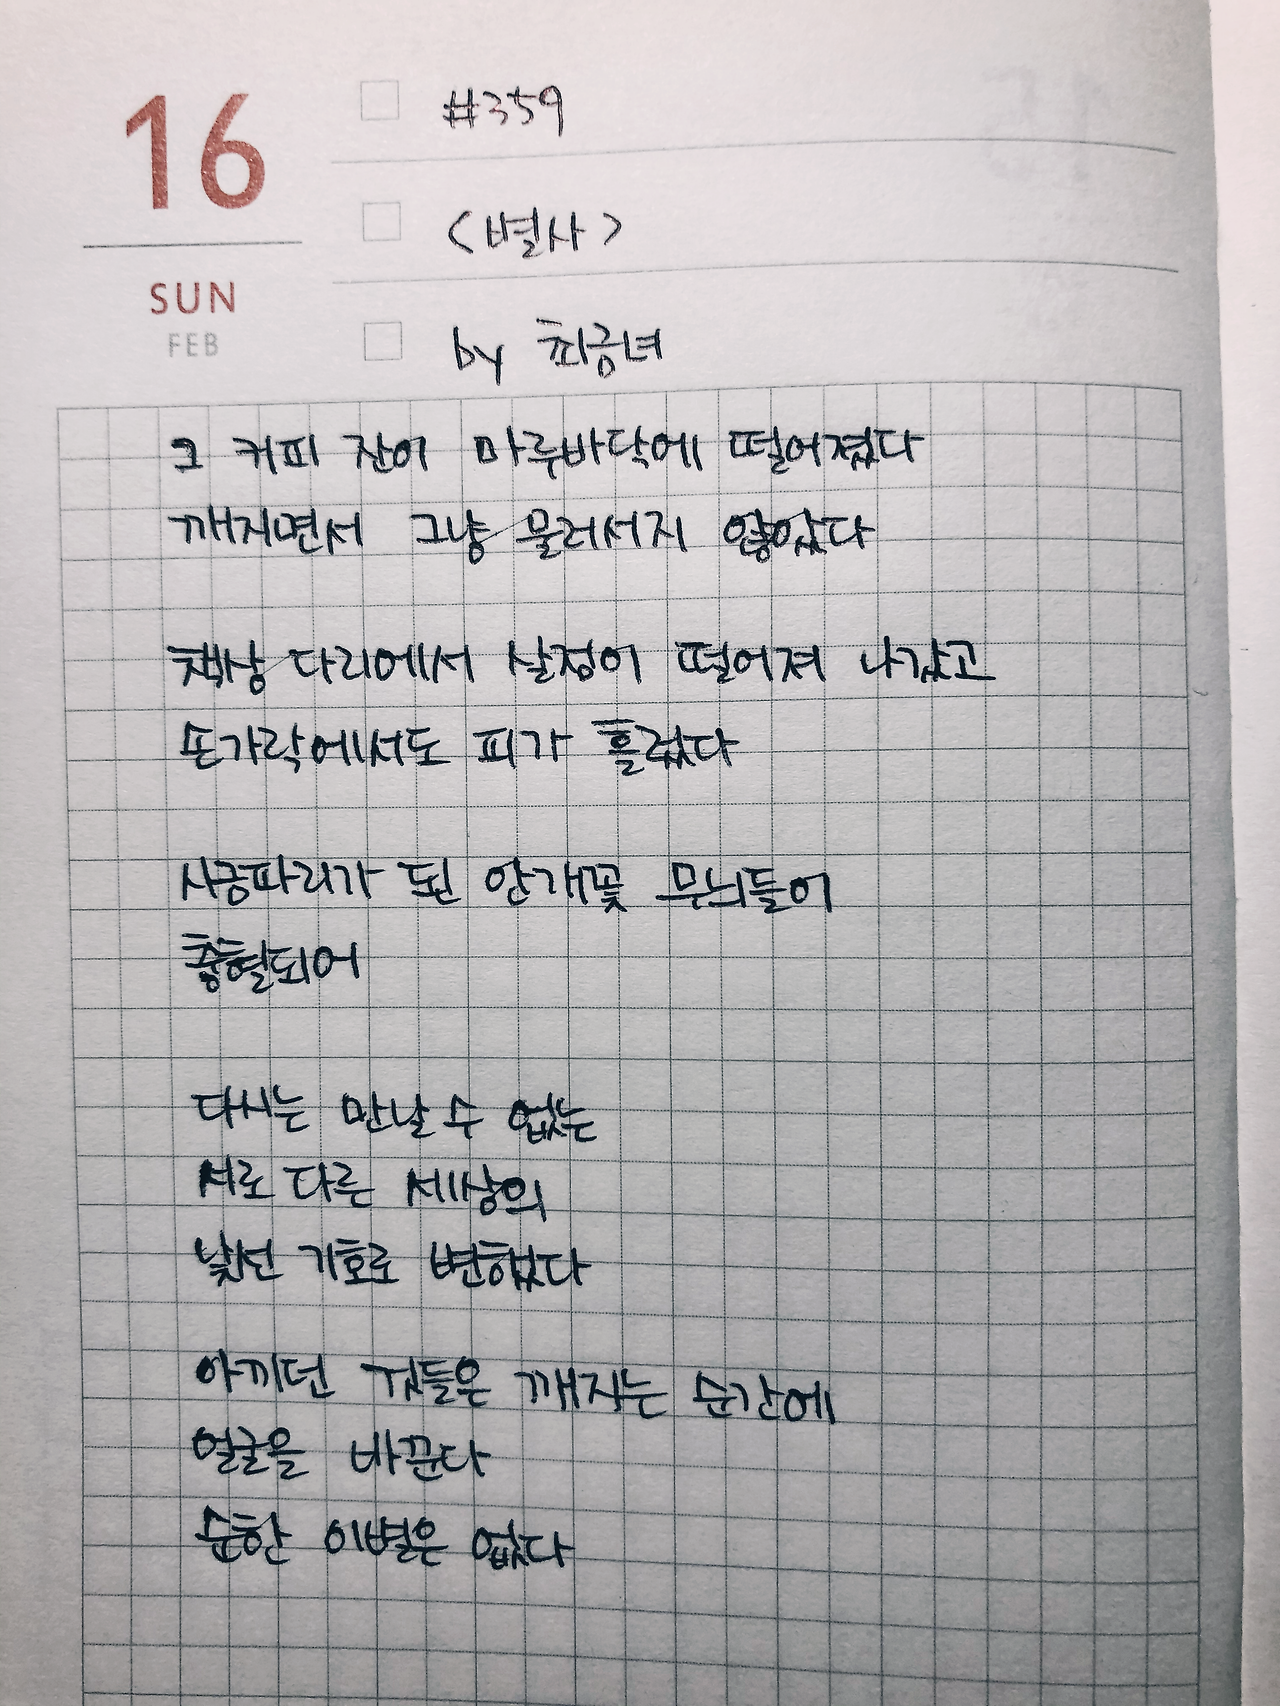 16
SUN
FEB
#359
<별사>
by 최금녀
그 커피 잔이 마루바닥에 떨어졌다
깨지면서 그냥 물러서지 않았다
책상 다리에서 살점이 떨어져 나갔고
손가락에서도 피가 흘렀다
사금파리가 된 안개꽃 무늬들이
충혈되어
다시는 만날 수 없는
서로 다른 세상의
낯선 기호로 변했다
아끼던 것들은 깨지는 순간에
얼굴을 바꾼다
순한 이별은 없다